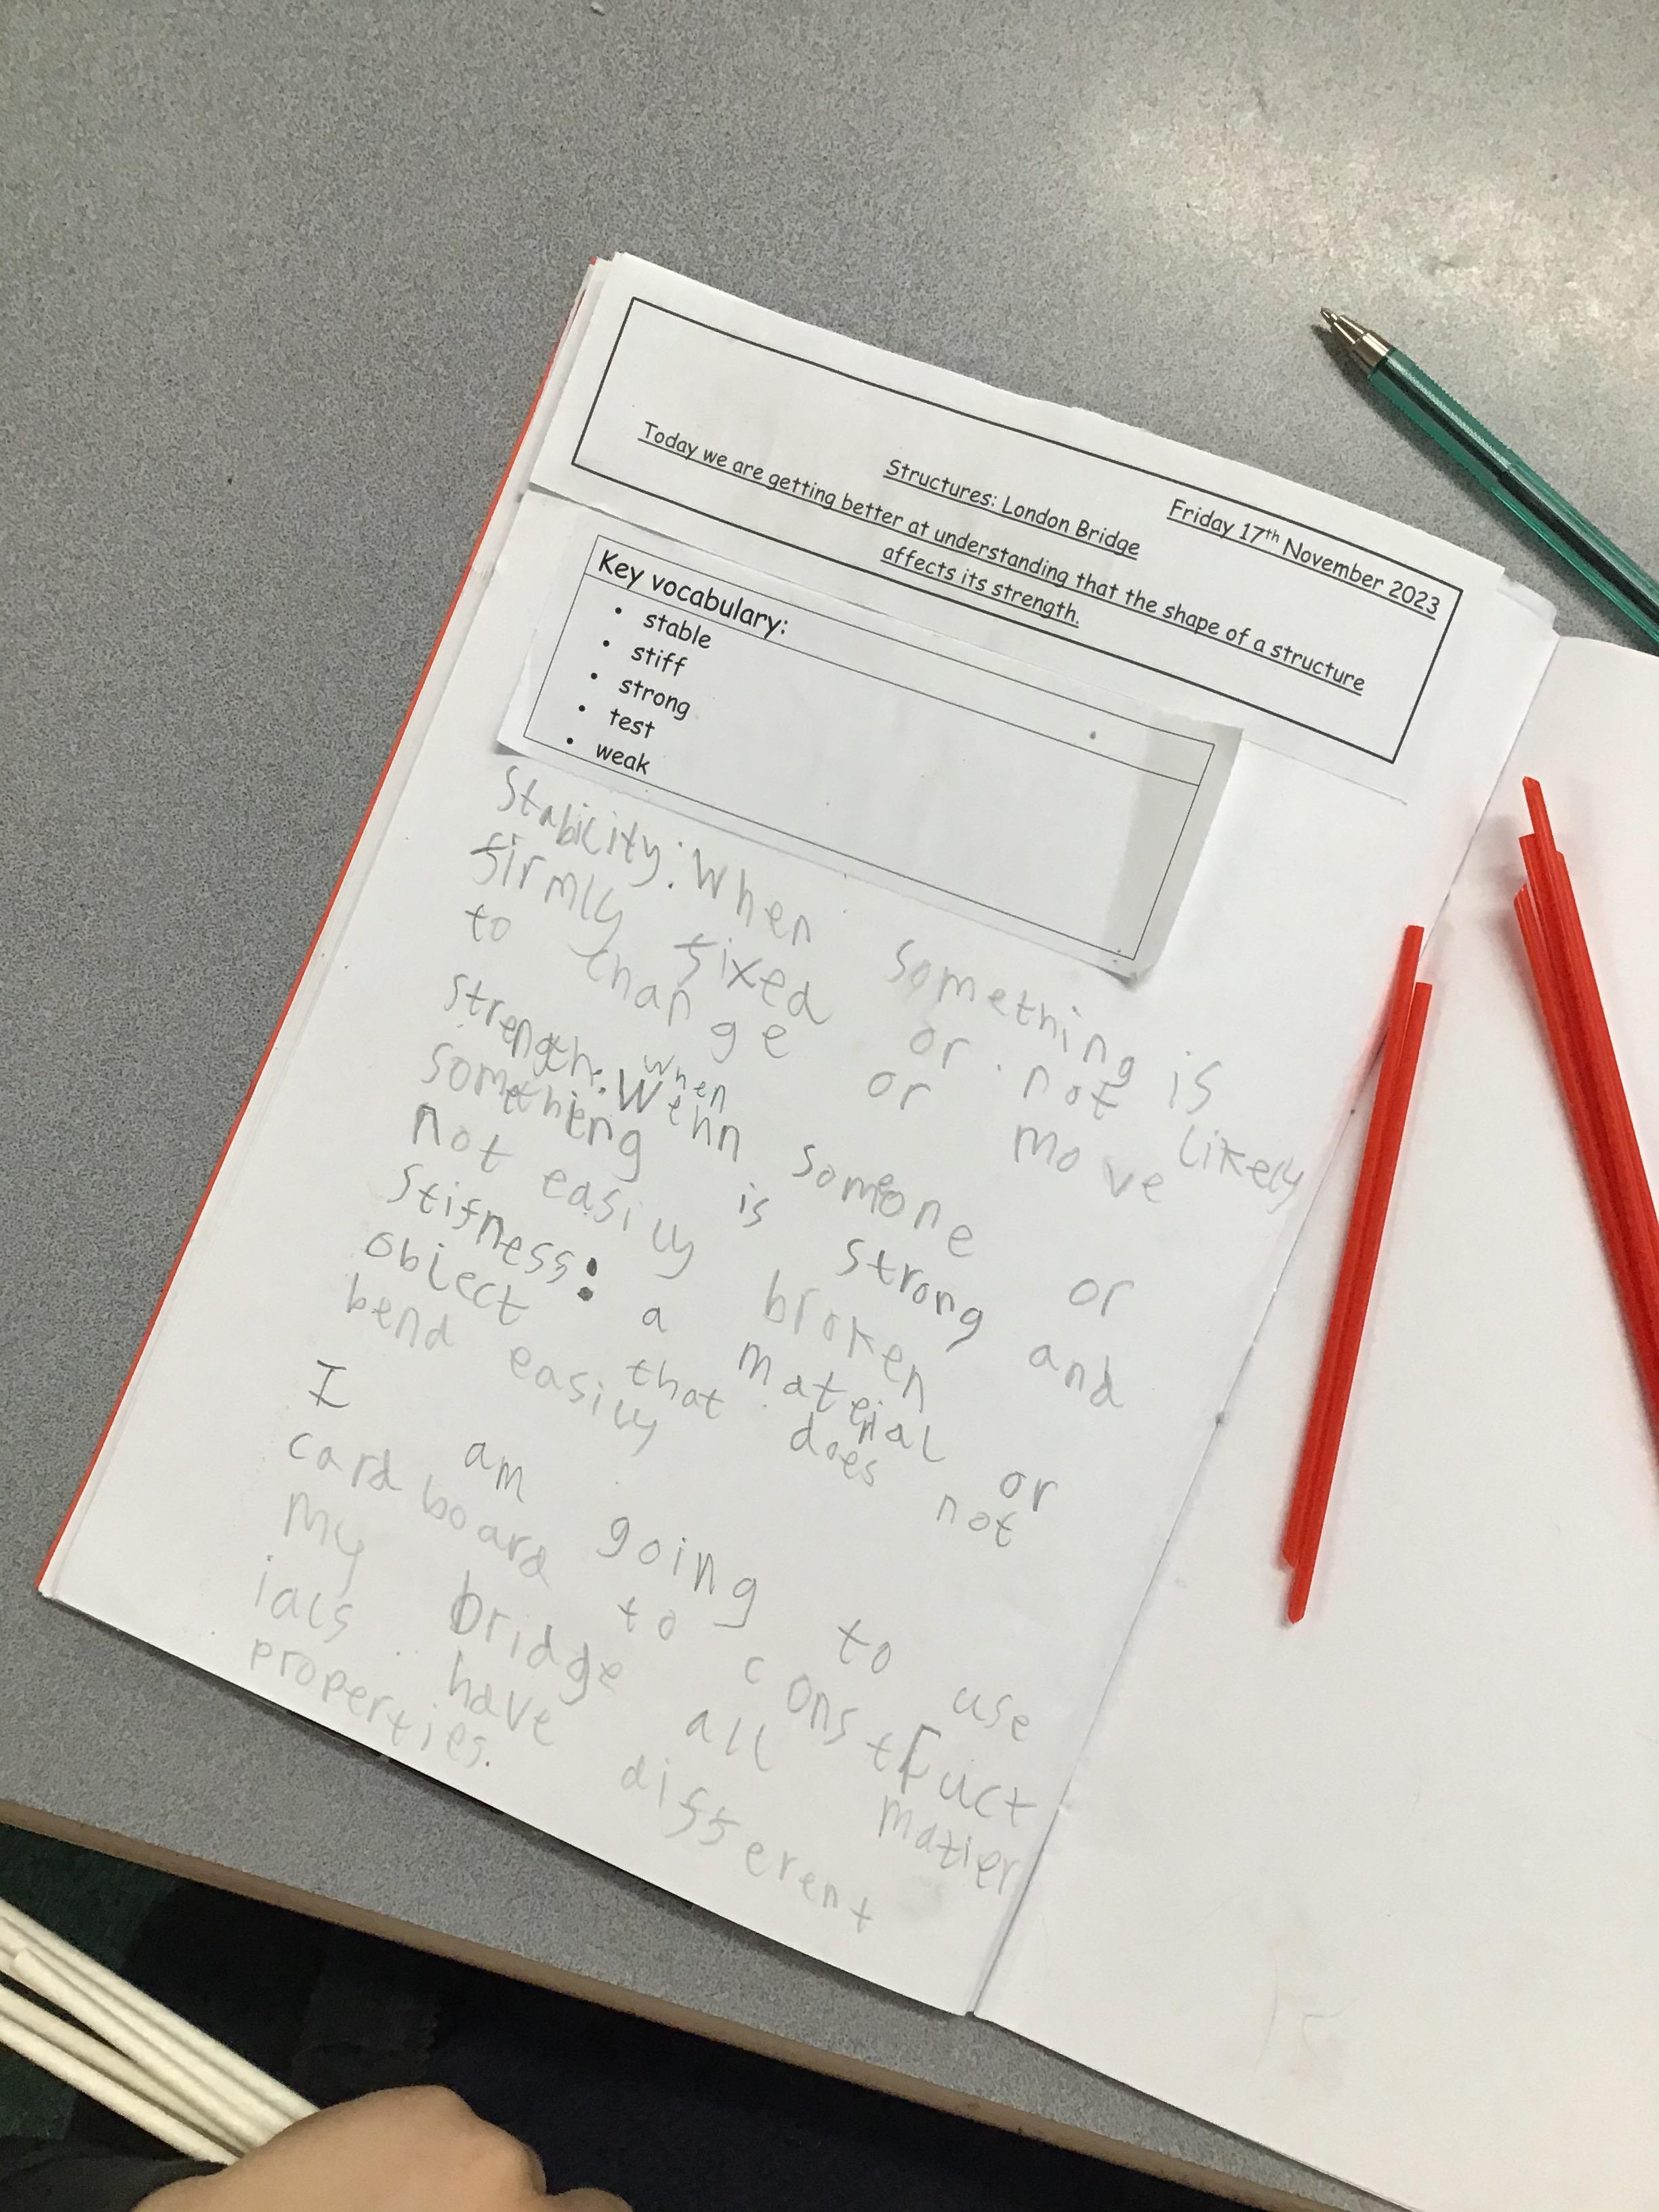 Friday 17th November 2023
Structures: London Bridge
Today we are getting better at understanding that the shape of a structure
affects its strength.
Key vocabulary:
• stable
• stiff
• strong
• test
• weak
Stability: When something is
firmly fixed or not likely
to change or move
when
Strength: Wehn someone or
something is strong and
not easily broken
Stifness: a material or
object that does not
bend easily
I am going to use
cardboard to construct
my bridge all matier
ials have different
properties.